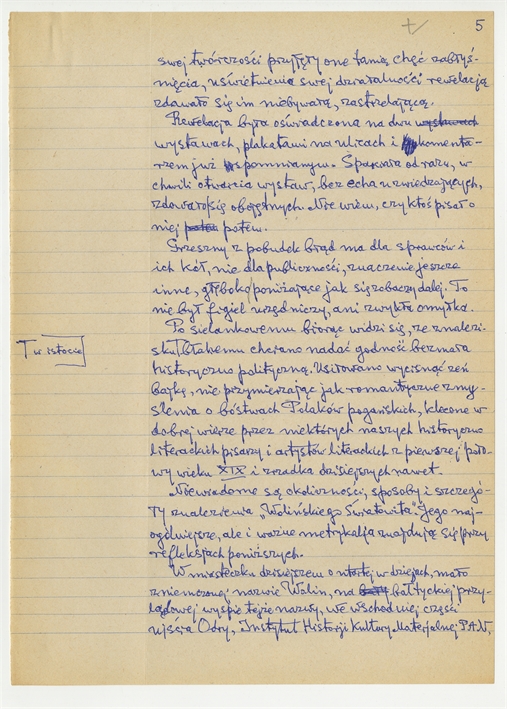 5
swej twórczości przyjęty one tamią chęć zabłyś-
nięcia, uświetnienia swej działalności rewelacją
zdawało się im niebywałą, zastrzelającą.
Rewelacja była oświadczona na dwu wystawach
wystawach, plakatami na ulicach i komenta-
rzem już wspomnianym. Spaliła od razu, w
chwili otwarcia wystaw, bez echa u zwiedzających,
zdawało się obojętnych. Nie wiem, czy ktoś pisał o
niej potem.
Grzeszny z pobudek błąd ma dla sprawców i
ich kół, nie dla publiczności, znaczenie jeszcze
inne, głęboko poniżające jak się zobaczy dalej. To
nie był figiel urzędniczy, ani zwykła omyłka.
Po sielankowemu biorąc widzi się, że znalezi-
T w istocie
sku błahemu chciano nadać godność bezmała
historyczno polityczną. Usiłowano wycisnąć zeń
bajkę, nie przymierzając jak romantyczne zmy-
ślenia o bóstwach Polaków pogańskich, klecone w
dobrej wierze przez niektórych naszych historyczno
literackich pisarzy i artystów literackich z pierwszej poło-
wy wieku XIX i zrzadka dzisiejszych nawet.
Niewiadome są okoliczności, sposoby i szczegó-
ły znalezienia „Wolińskiego Światowita". Jego naj-
ogólniejsze, ale i ważne metrykalja znajdują się przy
refleksjach poniższych.
W miasteczku dzisiejszem o utartej w dziejach, mało
zniemczonej nazwie Wolin, na bałtyckiej przy-
lądowej wyspie tejże nazwy, we wschodniej części
ujścia Odry, Instytut Historji Kultury Materjalnej P.A.N,